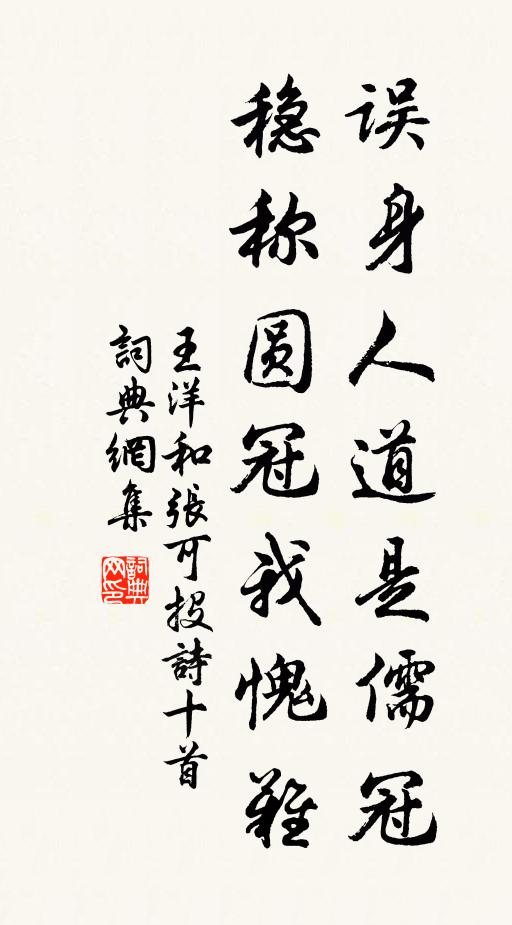 误身人道是儒冠
稳称圆冠我愧难
王洋和張可投詩十首
詞典網集
詞典网印